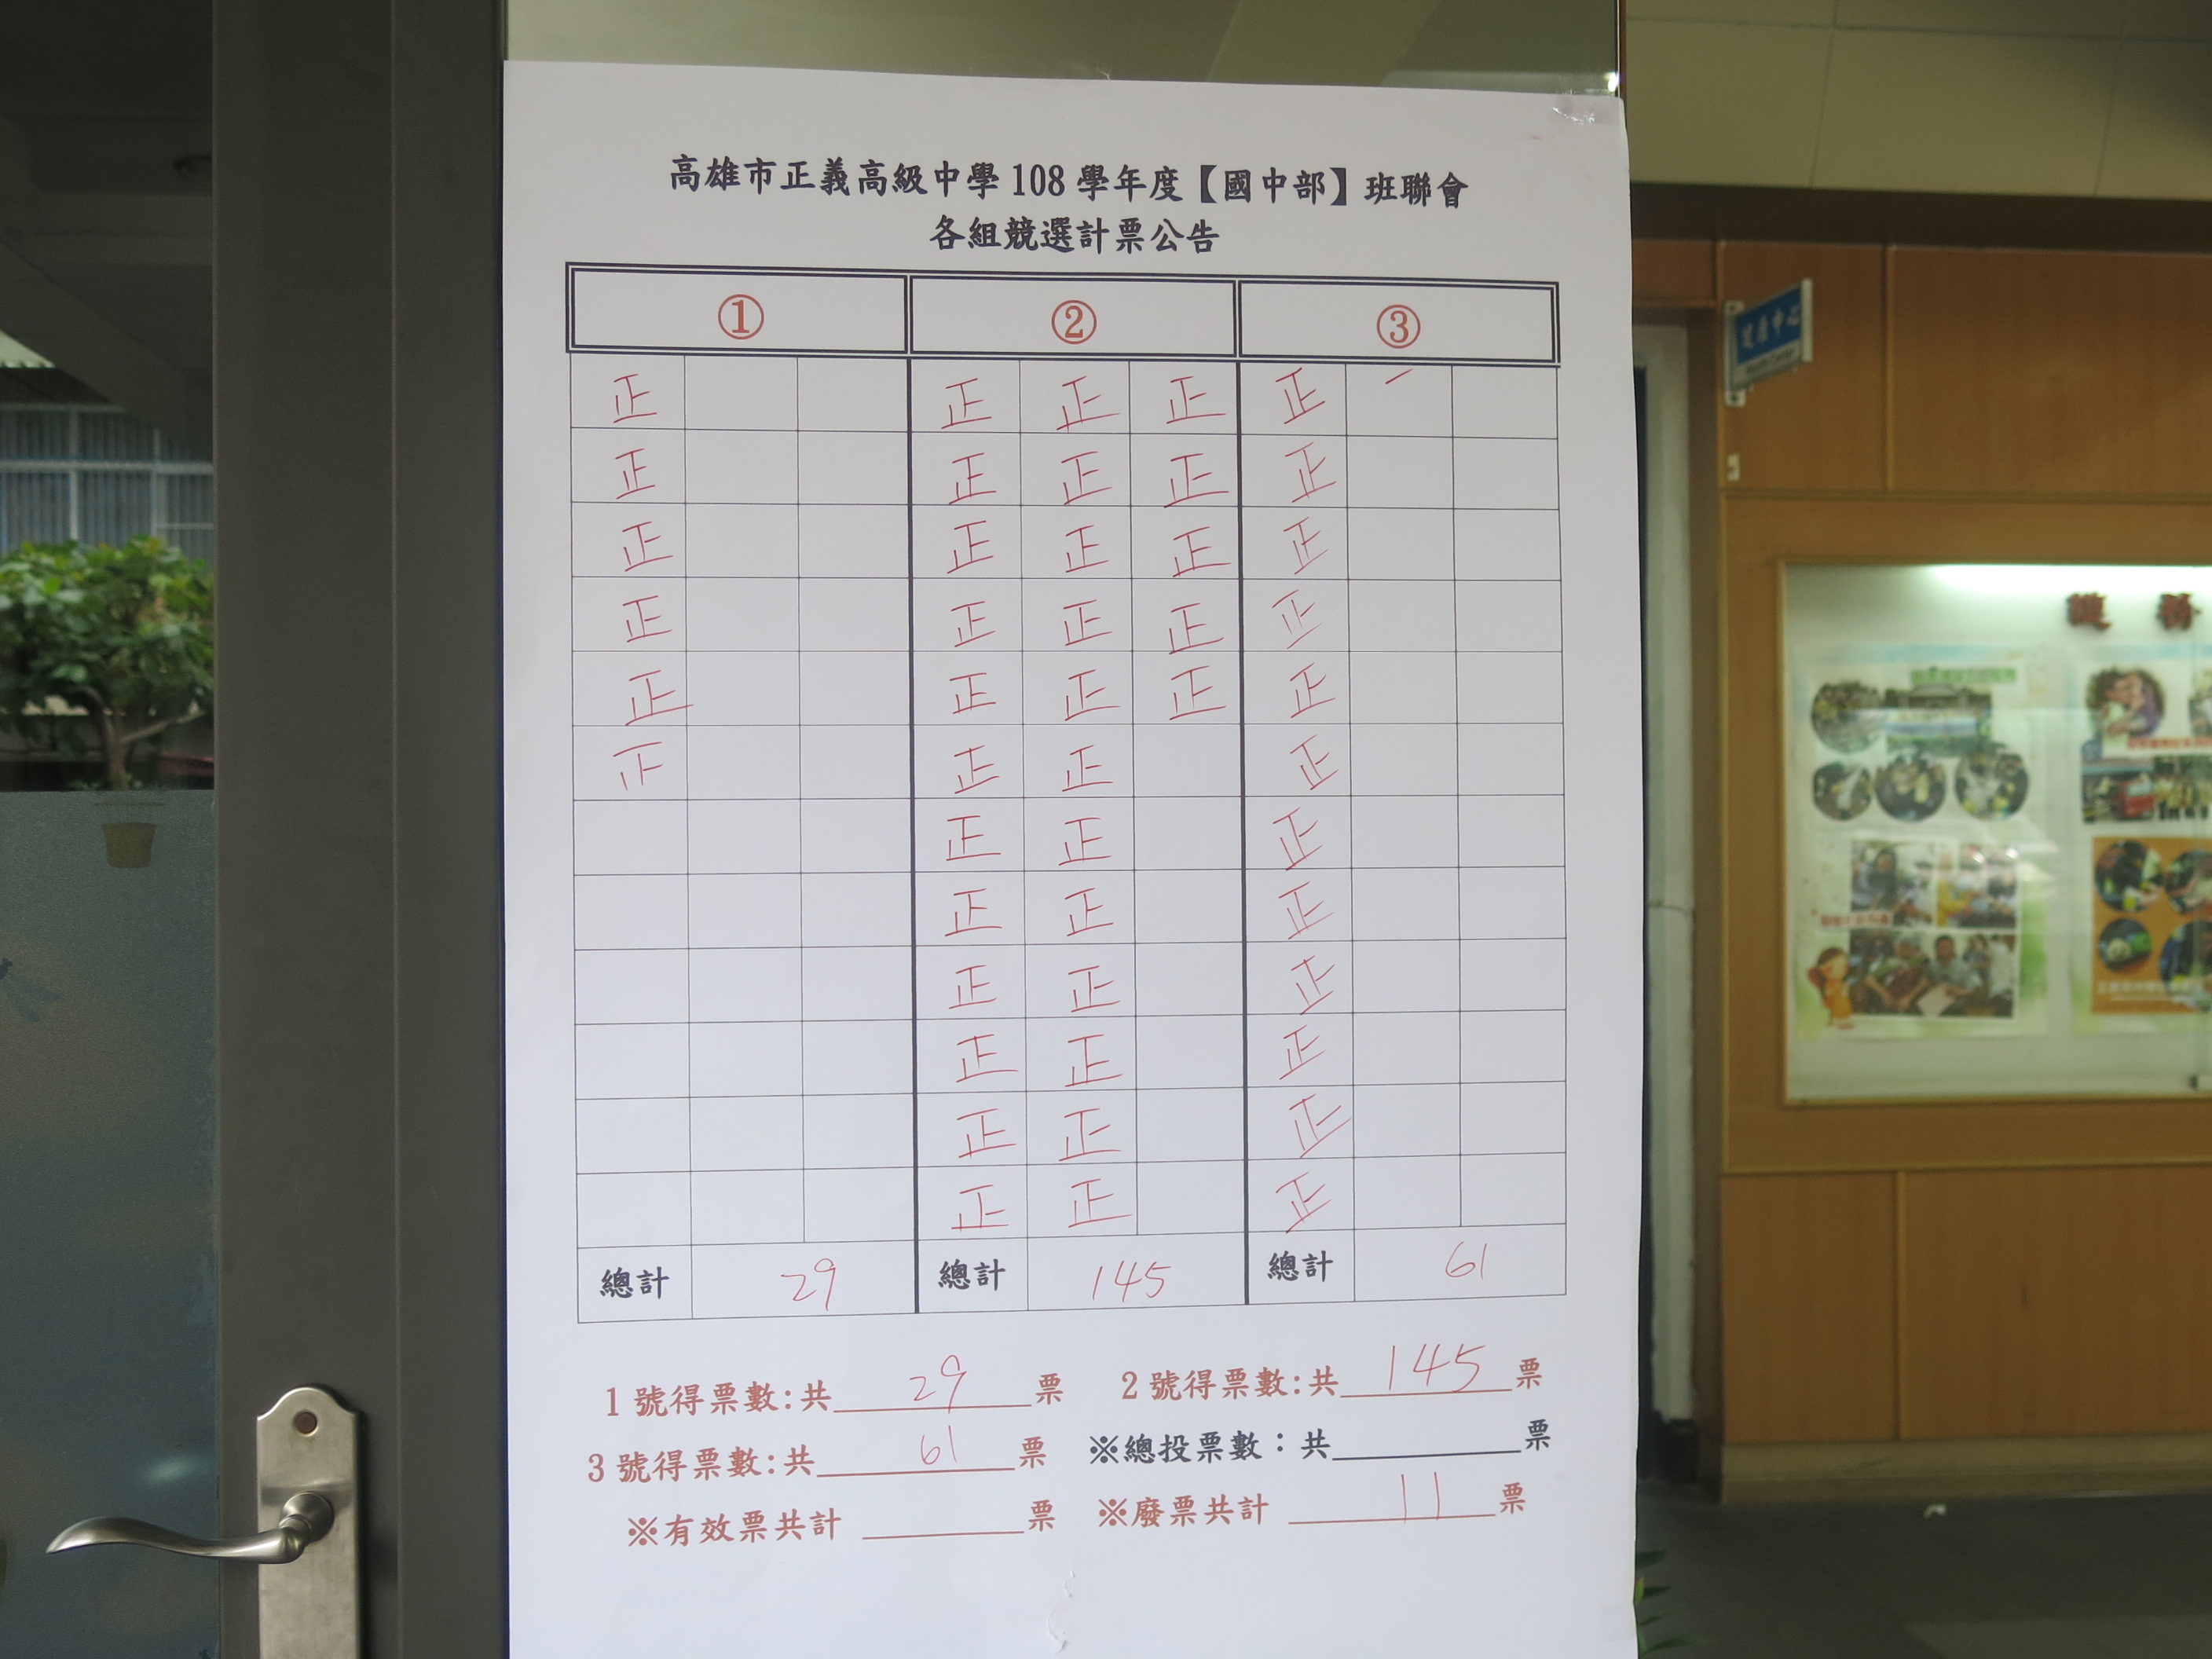 高雄市正義高級中學108學年度【國中部】班聯會
各組競選計票公告
① ② ③
正 正 正 正 正 一
正 正 正 正 正
正 正 正 正 正
正 正 正 正 正
正 正 正 正 正
正 正 正
正 正 正
正 正 正
正 正 正
正 正 正
正 正 正
總計 29 總計 145 總計 61
1號得票數:共29票 2號得票數:共145票
3號得票數:共61票 ※總投票數：共 票
※有效票共計 票 ※廢票共計 11 票
健康中心
Health Center